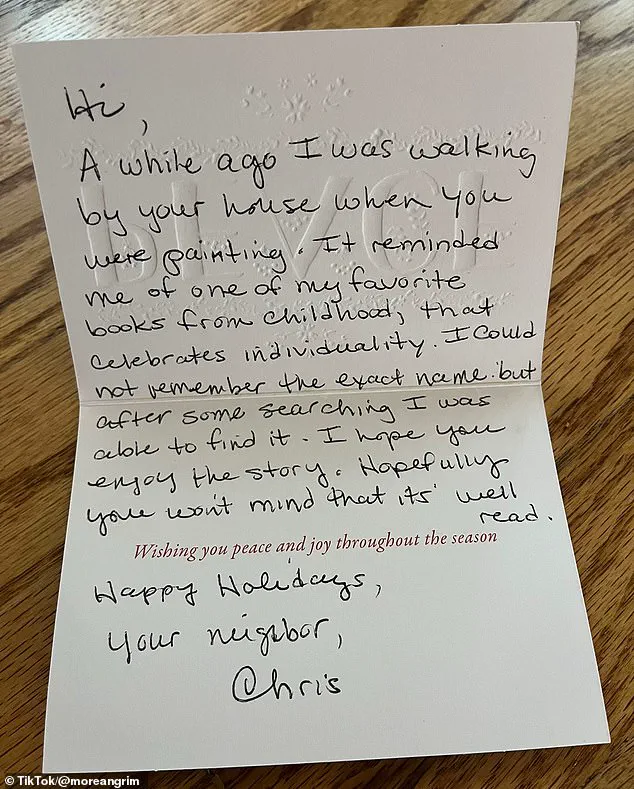 Hi,
A while ago I was walking
by your house when you
were painting. It reminded
me of one of my favorite
books from childhood, that
celebrates individuality. I could
not remember the exact name but
after some searching I was
able to find it. I hope you
enjoy the story. Hopefully
you won't mind that its' well
read.
Wishing you peace and joy throughout the season
Happy Holidays,
your neigbor,
Chris
© TikTok/@moreangrim